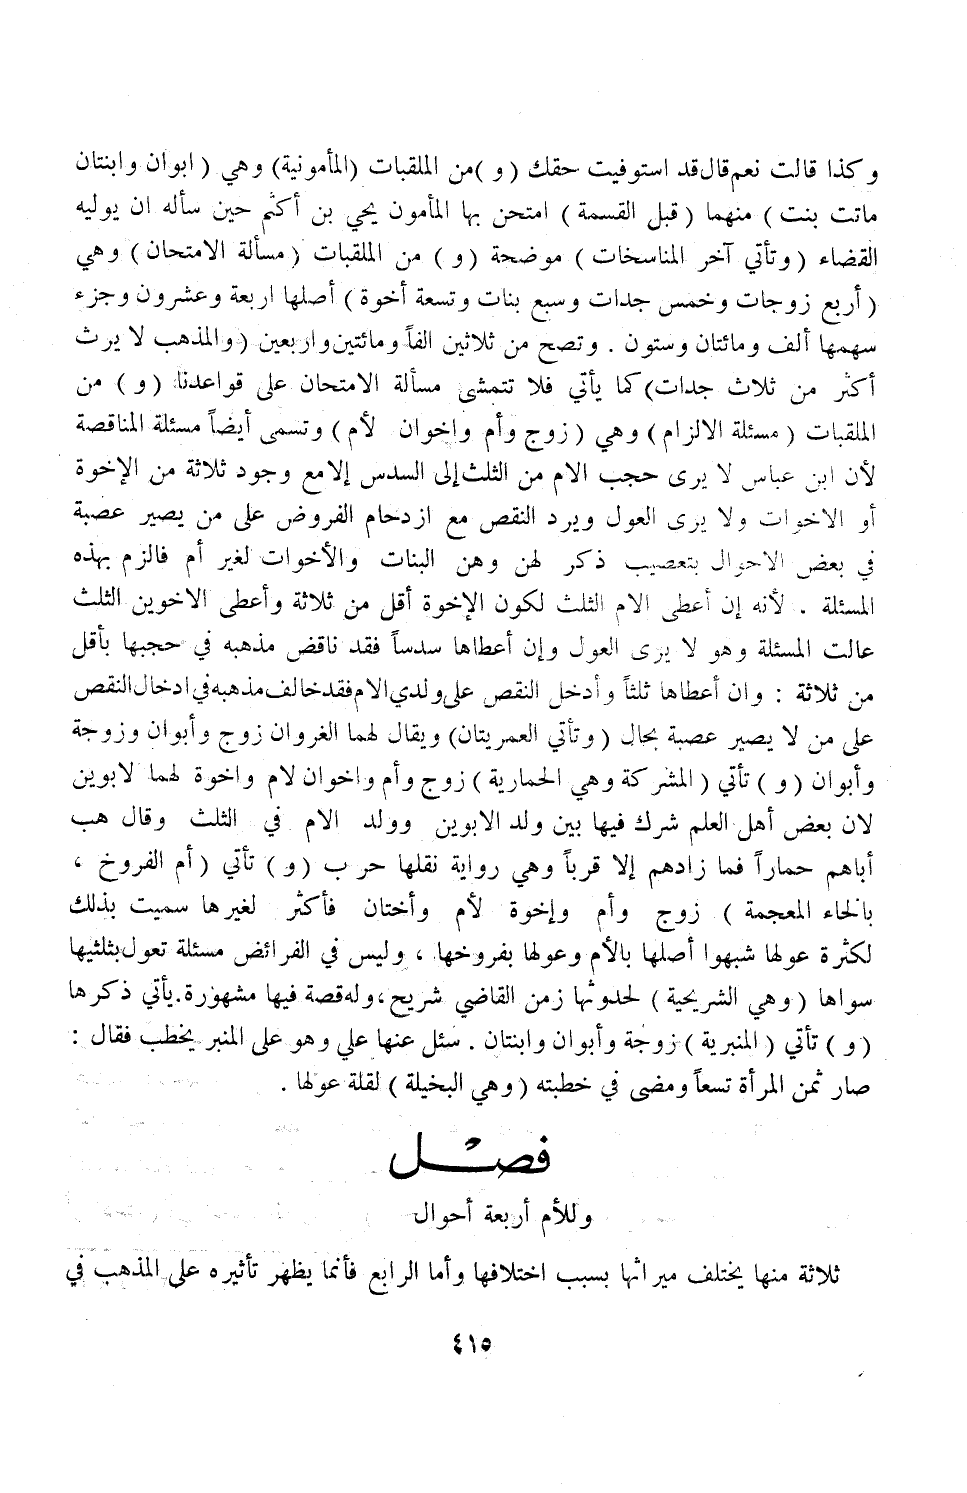 وكذا قالت نعم قال قد استوفيت حقك ( و ) من الملقبات (المأمونية) وهي ( ابوان وابنتان
ماتت بنت ) منهما ( قبل القسمة ) امتحن بها المأمون يحي بن أكثم حين سأله ان يوليه
القضاء ( وتأتي آخر المناسخات ) موضحة ( و ) من الملقبات ( مسألة الامتحان ) وهي
( أربع زوجات وخمس جدات وسبع بنات وتسعة أخوة ) أصلها اربعة وعشرون وجزء
سهمها ألف ومائتان وستون . وتصح من ثلاثين الفاً ومائتين واربعين ( والمذهب لا يرث
أكثر من ثلاث جدات) كما يأتي فلا تتمشى مسألة الامتحان على قواعدنا ( و ) من
الملقبات ( مسئلة الالزام ) وهي ( زوج وأم واخوان لأم ) وتسمى أيضاً مسئلة المناقصة
لأن ابن عباس لا يرى حجب الام من الثلث إلى السدس إلا مع وجود ثلاثة من الإخوة
أو الاخوات ولا يرى العول ويرد النقص مع ازدحام الفروض على من يصير عصبة
في بعض الاحوال بتعصيب ذكر لهن وهن البنات والأخوات لغير أم فالزم بهذه
المسئلة . لأنه إن أعطى الام الثلث لكون الإخوة أقل من ثلاثة وأعطى الاخوين الثلث
عالت المسئلة وهو لا يرى العول وإن أعطاها سدساً فقد ناقض مذهبه في حجبها بأقل
من ثلاثة : وان أعطاها ثلثاً وأدخل النقص على ولدي الام فقد خالف مذهبه في ادخال النقص
على من لا يصير عصبة بحال ( وتأتي العمريتان) ويقال لهما الغروان زوج وأبوان وزوجة
وأبوان ( و ) تأتي ( المشركة وهي الحمارية ) زوج وأم واخوان لام واخوة لهما لابوين
لان بعض أهل العلم شرك فيها بين ولد الابوين وولد الام في الثلث وقال هب
أباهم حماراً فما زادهم إلا قرباً وهي رواية نقلها حرب ( و ) تأتي ( أم الفروخ ،
بالخاء المعجمة ) زوج وأم وإخوة لأم وأختان فأكثر لغيرها سميت بذلك
لكثرة عولها شبهوا أصلها بالأم وعولها بفروخها ، وليس في الفرائض مسئلة تعول بثلثيها
سواها ( وهي الشريحية ) لحدوثها زمن القاضي شريح ، وله قصة فيها مشهورة . يأتي ذكرها
( و ) تأتي ( المنبرية ) زوجة وأبوان وابنتان . سئل عنها علي وهو على المنبر يخطب فقال :
صار ثمن المرأة تسعاً ومضى في خطبته ( وهي البخيلة ) لقلة عولها .
فصل
وللأم أربعة أحوال
ثلاثة منها يختلف ميراثها بسبب اختلافها وأما الرابع فأنما يظهر تأثيره على المذهب في
٤١٥